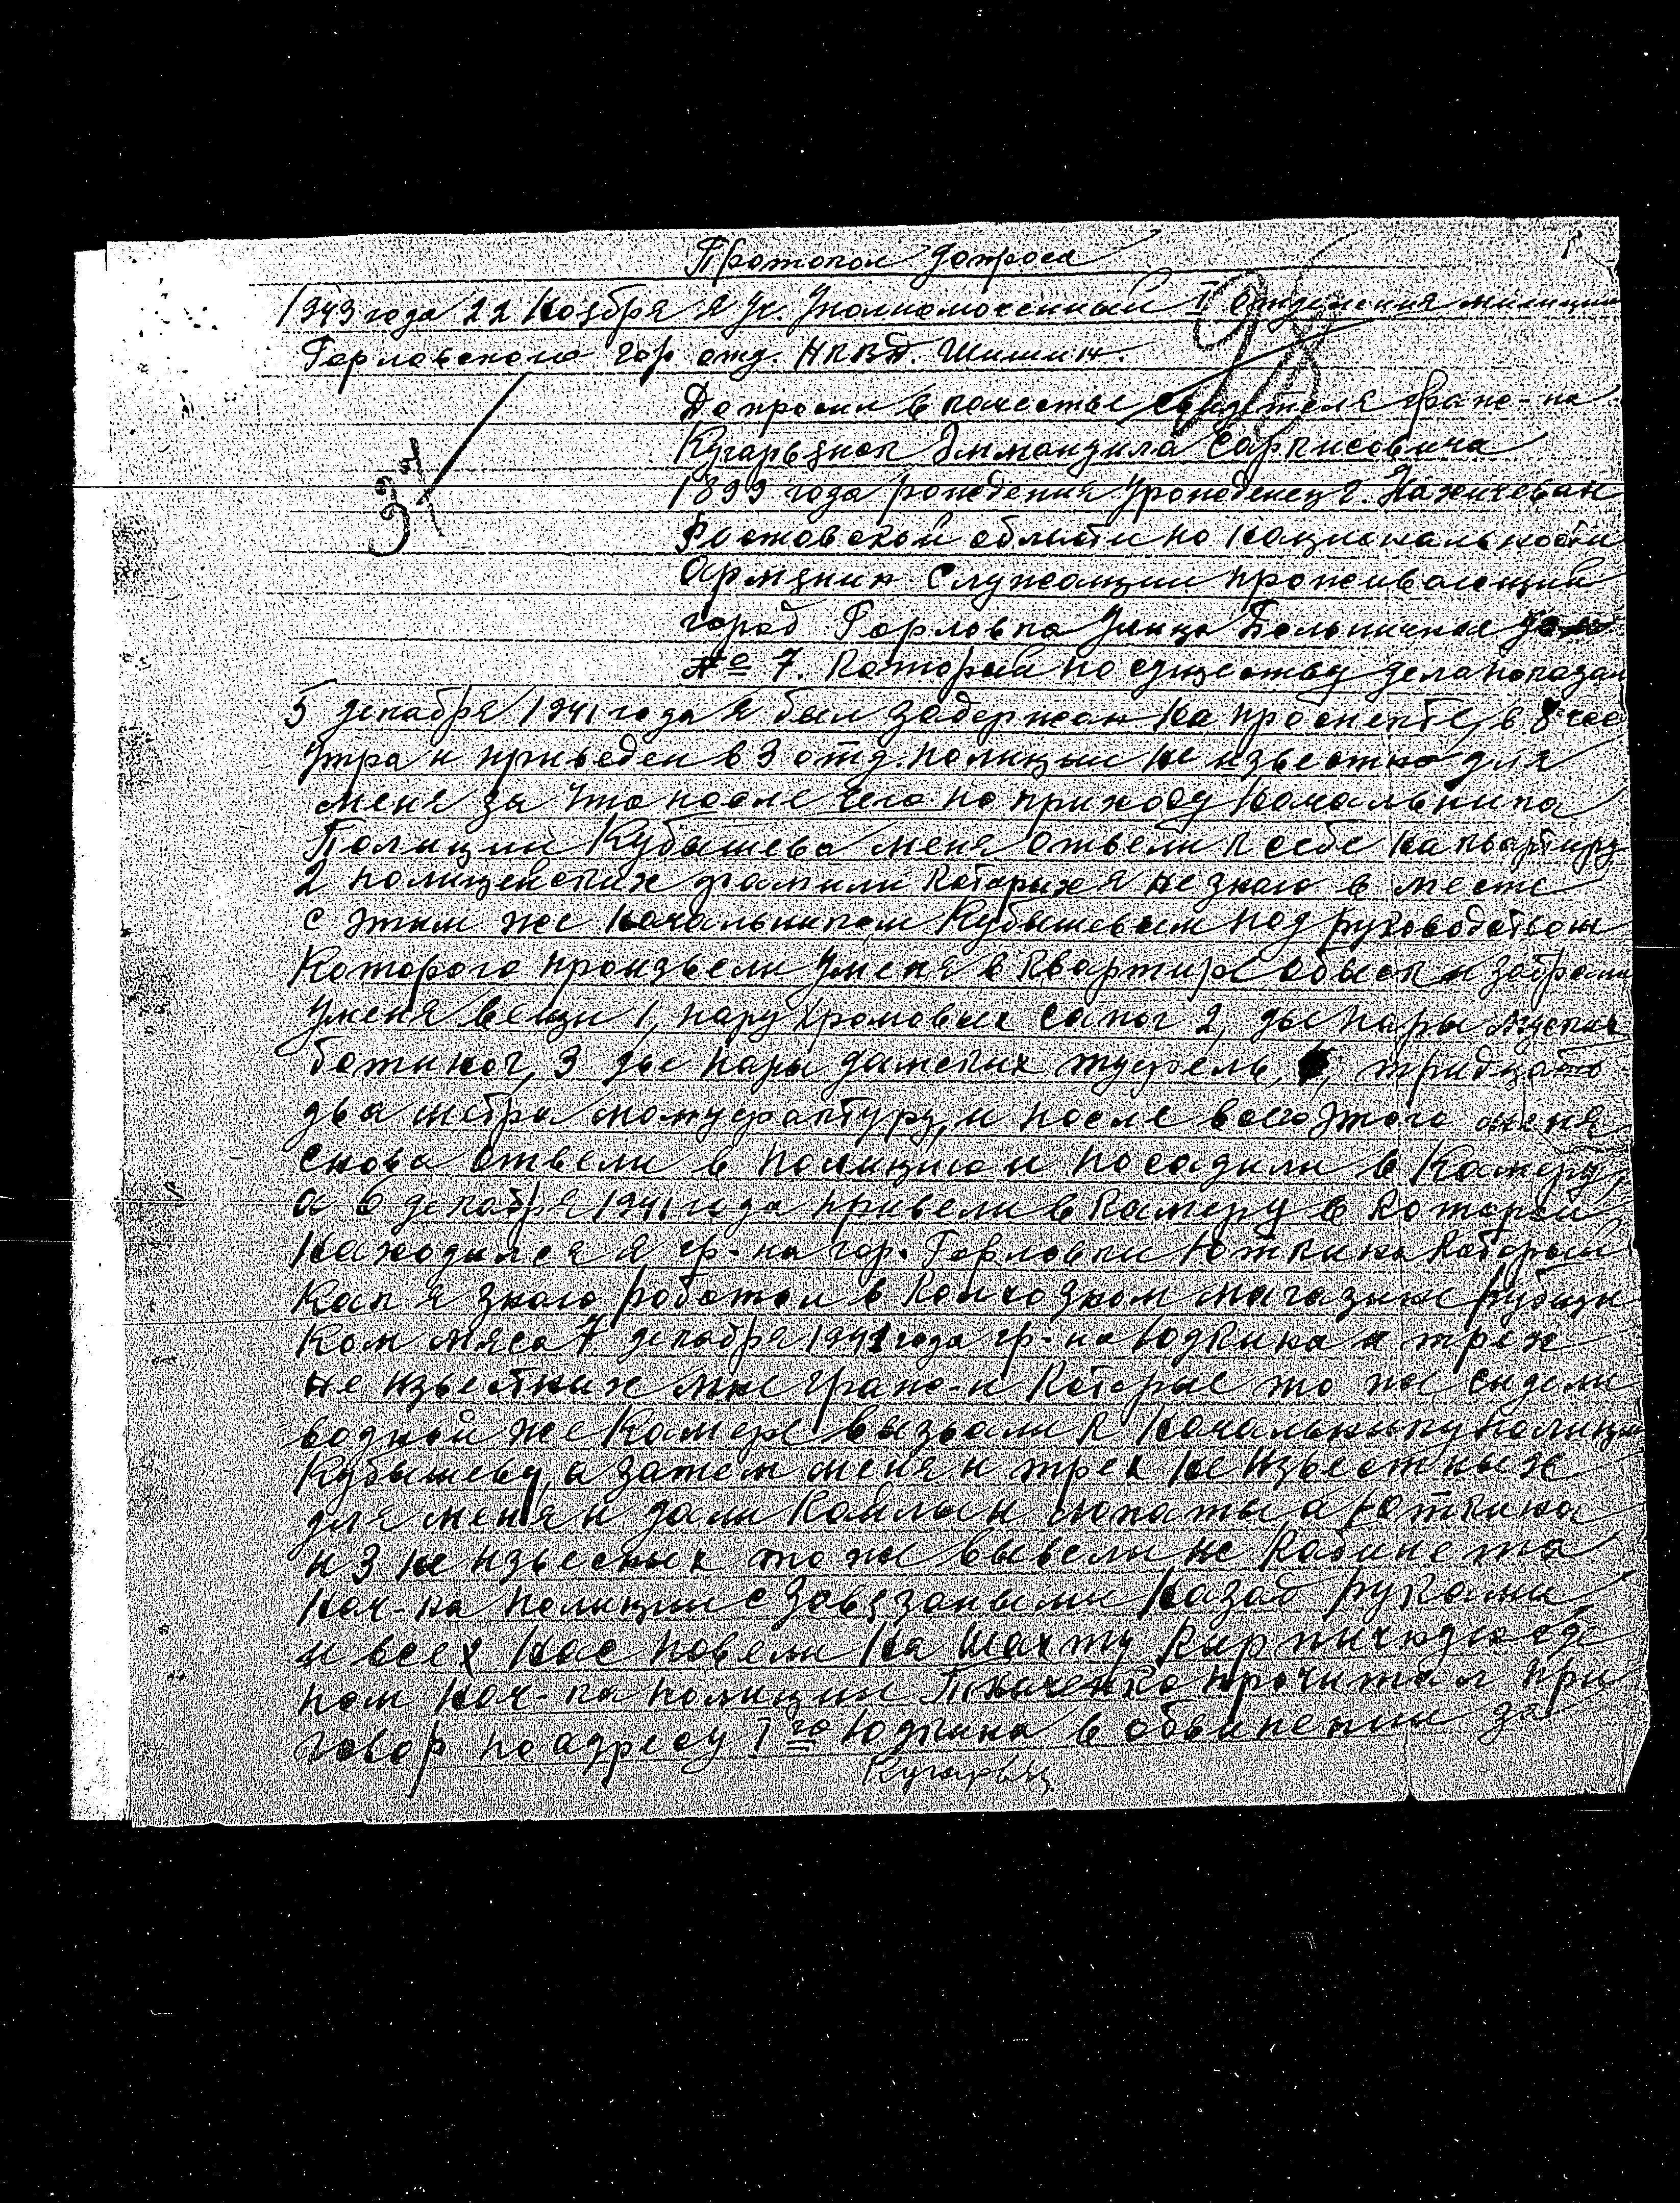 Протокол допроса
1943 года 22 ноября я Уч. Уполномоченный I отделения милиции
Горловского гор. отд. НКВД. Шишин.
98
37
Допросил в качестве свидетеля граж-на
Кугарьянок Эммануила Саркисовича
1899 года рождения Уроженец г. Нахичеван
Ростовской области по национальности
Армянин Служащий проживающий
город Горловка Улица Больничная Дом
№ 7. Который по существу дела показал
5 декабря 1941 года я был задержан на проспекте, в 8 час
Утра и приведен в 3 отд. полиции не известно для
меня за что после чего по приходу начальника
Полиции Кубышева меня отвели к себе на квартиру
2 полицейских фамили которых я не знаю в месте
с этим же начальником Кубышевым под руководством
Которого произвели Уменя в квартире обыск и забрали
Уменя вещи 1, пару хромовых сапог 2, две пары мужских
ботинок, 3 две пары дамских туфель, тридцать
два метра мануфактуру, и после всего этого меня
снова отвели в полицию и посадили в Камеру,
а 6 декабря 1941 года привели в камеру в которой
находился я гр-на гор. Горловки Юткина который
Как я знаю работал в колхозном магазине рубщи
ком мяса 7 декабря 1941 года гр-на Юдкина и трех
не известных мне граж-н которые то же сидели
водной же Камере вызвали к начальнику полиции
Кубышеву, а затем меня и трех не известных
для меня и дали Кайлы и лопаты, а Юткина
и 3 не известных то же вывели из Кабинета
нач-ка полиции с Завязаными назад руками
и всех нас повели на шахту Кирпичную где
пом нач-ка полиции Ткаченко прочитал при
говор по адресу 1го Юдкина в обвинении за
Кугарьян